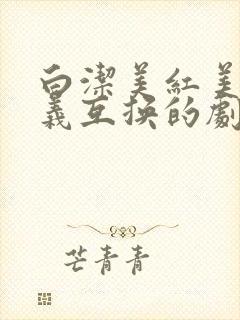 白潔美紅美
義互换的劇
芒青青